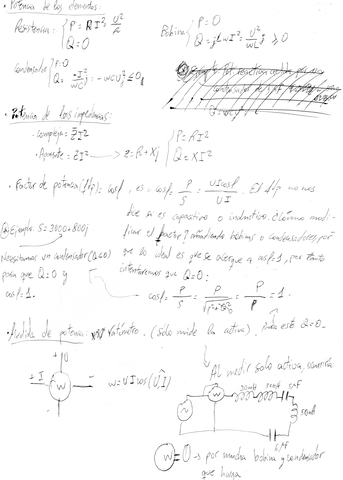 • Potencia de los elementos:
Resistencia: { P = RI² = U²/R
Q = 0
Bobina { P = 0
Q = jLωI² = U²/ωL j ≥ 0
Condensador { P = 0
Q = -I²/ωC j = -ωCU² j ≤ 0
• Potencia de las impedancias:
- Compleja = Z̄I²
- Aparente = ZI² → Z = R + Xj { P = RI²
Q = XI²
• Factor de potencia (f/p) = cosφ, es = cosφ = P/S = UI cosφ / UI. El f/p no nos
dice si es capacitivo o inductivo. ¿Cómo modi-
ficar el factor? añadiendo bobinas o condensadores, por
que lo ideal es que se acerque a cosφ=1, por tanto
intentaremos que Q=0:
Ejemplo: S = 3000 + 800j
Necesitamos un condensador (Q≤0)
para que Q=0 y
cosφ=1.
cosφ = P/S = P/√(P²+Q²) = P/P = 1.
Para esto Q=0.
• Medida de potencia: Vatímetro. (Solo mide la activa).
Al medir solo activa,
+I
W
W = UI cos(U,I)
W
50mH
6μF
W = 0 → por mucha bobina y condensador
que haya